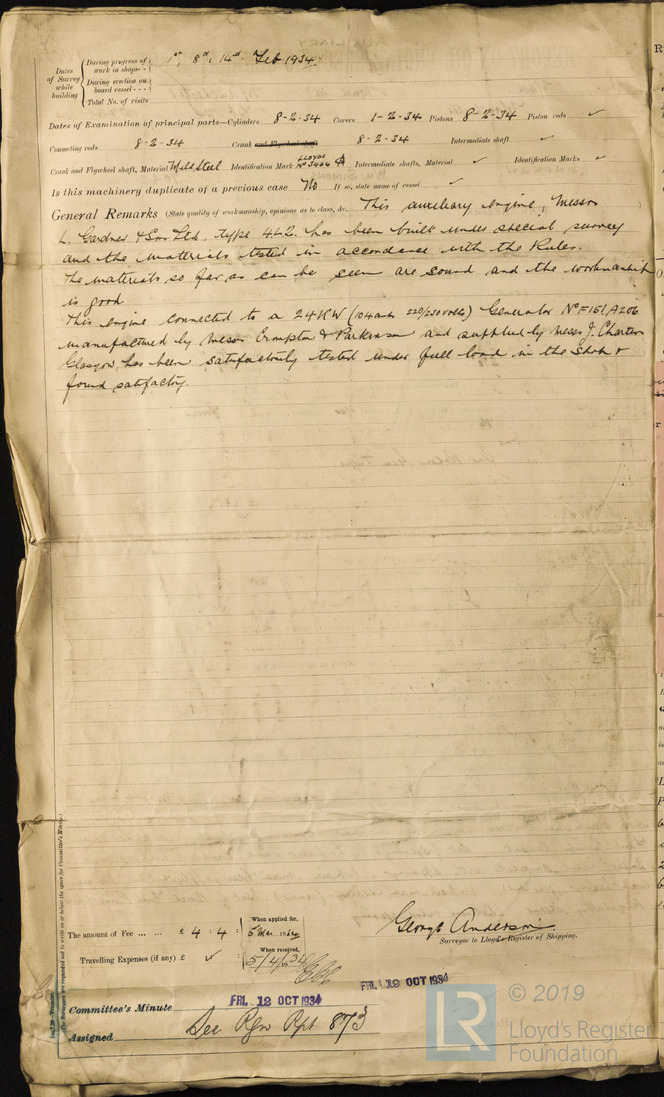 Dates of Survey while building
During progress of work in shops - - 1st, 8th, 14th Feb 1934
During erection on board vessel - - -
Total No. of visits
Dates of Examination of principal parts—Cylinders 8-2-34 Covers 1-2-34 Pistons 8-2-34 Piston rods ✓
Connecting rods 8-2-34 Crank and Flywheel shaft 8-2-34 Intermediate shaft ✓
Crank and Flywheel shaft, Material Mild Steel Identification Mark LLOYDS Nº 3404 Intermediate shafts, Material ✓ Identification Marks ✓
Is this machinery duplicate of a previous case No If so, state name of vessel ✓
General Remarks (State quality of workmanship, opinions as to class, &c. This auxiliary engine, Messrs
L. Gardner & Sons Ltd, type 4L2. has been built under special survey
and the materials tested in accordance with the Rules.
The materials so far as can be seen are sound and the workmanship
is good
This engine connected to a 24KW (104 amps 220/230 volts) Generator Nº F151A206
manufactured by Messrs Crompton & Parkinson and supplied by Messrs J. Charters
Glasgow, has been satisfactorily tested under full load in the shop &
found satisfactory.
The amount of Fee ... ... £ 4 : 4 : When applied for, 5 Mar 1934
Travelling Expenses (if any) £ ✓ When received, 5/4/34
George Anderson
Surveyor to Lloyd's Register of Shipping.
Committee's Minute FRI. 12 OCT 1934 FRI. 12 OCT 1934
Assigned See Rpt 873
(The Surveyors are requested not to write on or below the space for Committee's Minute.)
LR © 2019
Lloyd's Register
Foundation